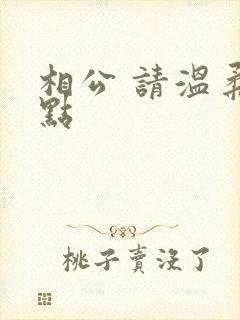 相公 請溫柔
點
桃子賣沒了